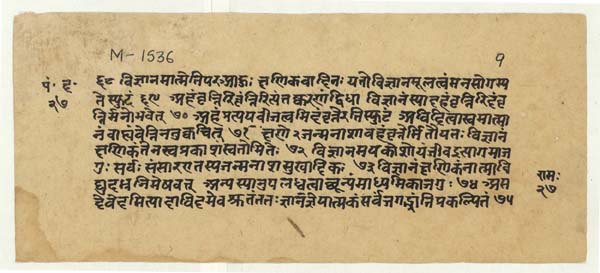 M-1536
१
पं॰ द॰
२७
६८ विज्ञानमात्मेति पर आङः क्षणिकवादिनः यतो विज्ञानमूलत्वं मनसो गम्य
ते स्फुटं ६९ अहंवृत्तिरिदंवृत्तिरित्यंतःकरणं द्विधा विज्ञानं स्यादहंवृत्तिरिदंवृ
त्तिर्मनो भवेत् ७० अहंप्रत्ययबीजत्वमिदंवृत्तेरिति स्फुटं अविदित्वा स्वमात्मा
नं बाह्यं वेत्ति न तु क्वचित् ७१ क्षणे २ जन्मनाशावहंवृत्तेर्मितौ यतः विज्ञानं
क्षणिकं तेन स्वप्रकाशं स्वतो मितेः ७२ विज्ञानमयकोशो यं जीव इत्यागमा ज
गुः सर्वः संसार एतस्य जन्मनाशसुखादिकः ७३ विज्ञानं क्षणिकं नात्मा वि
द्युदभ्रनिमेषवत् अन्यस्यानुपलब्धत्वाच्छून्यं माध्यमिका जगुः ७४ अस
देवेदमित्यादाविदमेव श्रुतं ततः ज्ञानज्ञेयात्मकं सर्वं जगद्भ्रांतिप्रकल्पितं ७५
रामः
२७